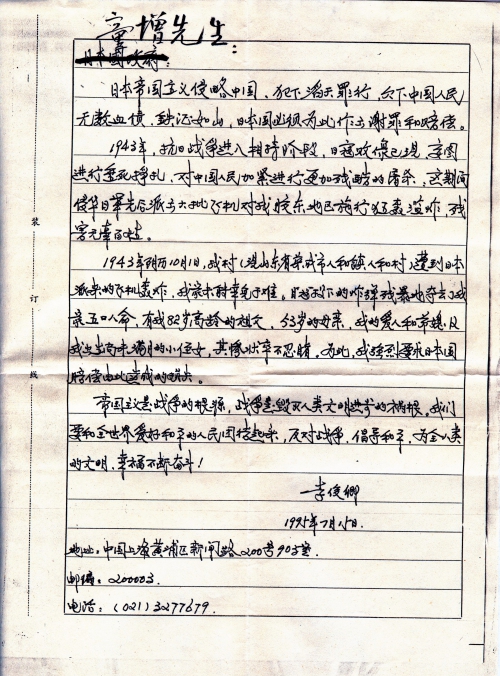 童增先生：
日本国政府：
日本帝国主义侵略中国，犯下滔天罪行，欠下中国人民
无数血债，铁证如山，日本国必须为此作出谢罪和赔偿。
1943年，抗日战争进入相持阶段，日寇败像已现，妄图
进行垂死挣扎，对中国人民加紧进行更加残酷的屠杀，这期间
侵华日军先后派出大批飞机对我胶东地区施行狂轰滥炸，残
害无辜百姓。
1943年阴历10月1日，我村（现山东省荣成市人和镇人和村）遭到日本
派来的飞机轰炸，我家未能幸免于难。日机投下的炸弹残暴地夺去了我
家五口人命，有我82岁高龄的祖父，53岁的母亲，我的爱人和弟媳及
我出生尚未满月的小侄女，其惨状卒不忍睹。为此，我强烈要求日本国
赔偿由此造成的损失。
帝国主义是战争的根源，战争是毁灭人类文明进步的祸根，我们
要和全世界爱好和平的人民团结起来，反对战争，倡导和平，为全人类
的文明、幸福不断奋斗！
李俊卿
1995年7月15日.
地址：中国上海黄埔区新闸路200号903室.
邮编：200003.
电话：(021)3277679.
装
订
线